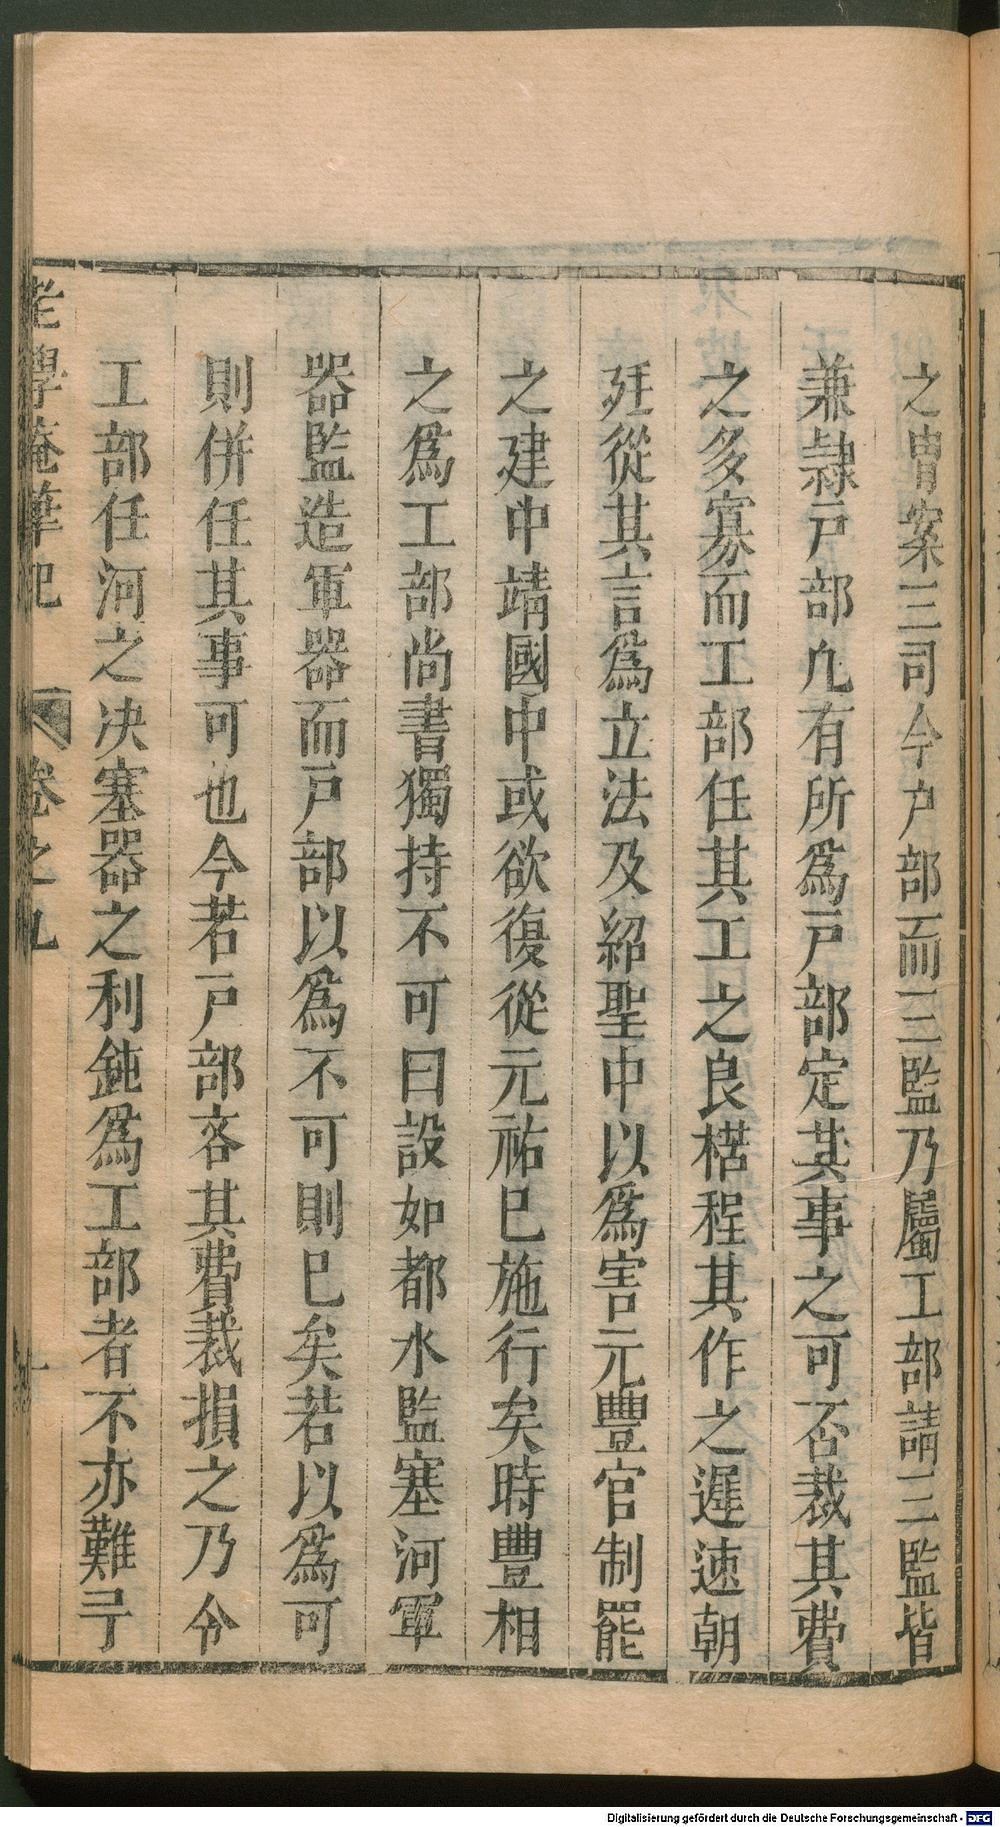 之胄案三司今户部而三監乃屬工部請三監皆
兼隷戸部凢有所爲戸部定其事之可否裁其費
之多寡而工部任其工之良楛程其作之遲速朝
廷從其言爲立法及紹聖中以爲害元豐官制罷
之建中靖國中或欲復從元祐巳施行矣時豐相
之爲工部尚書獨持不可曰設如都水監塞河軍
器監造軍器而戸部以爲不可則巳矣若以爲可
則併任其事可也今若戸部吝其費裁損之乃令
工部任河之决塞器之利鈍爲工部者不亦難乎
老學菴筆記 卷之九
Digitalisierung gefördert durch die Deutsche Forschungsgemeinschaft - DFG